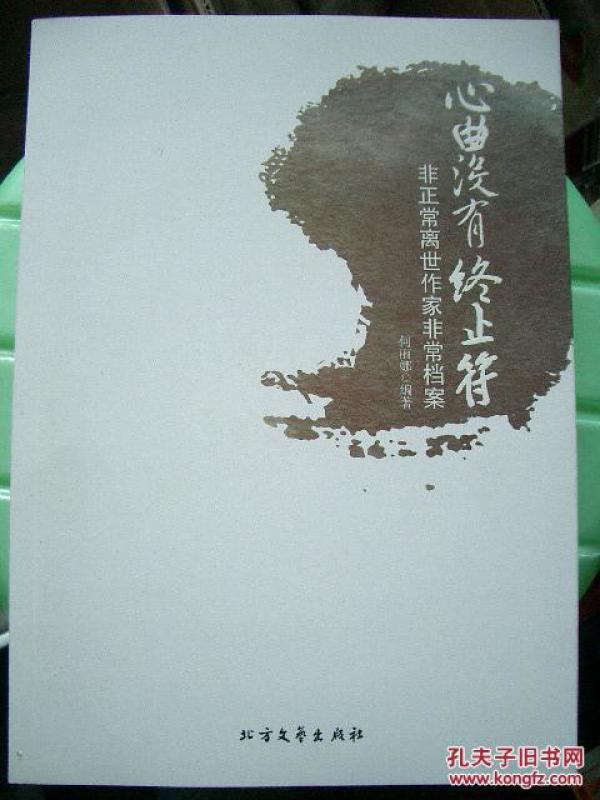 心曲没有终止符
非正常离世作家非常档案
何丽娜◎编著
北方文艺出版社
孔夫子旧书网
www.kongfz.com